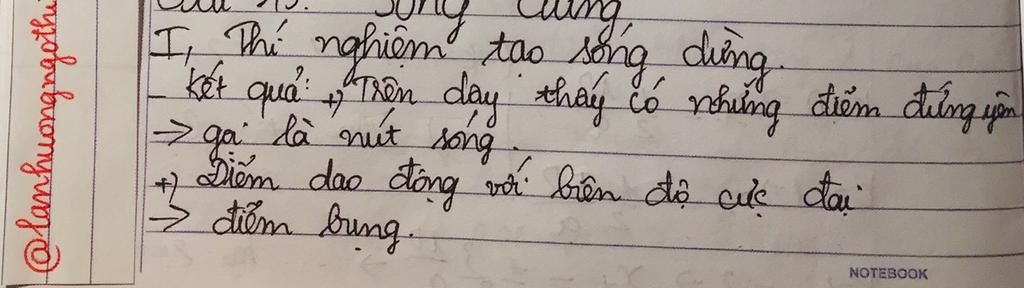 sóng dừng
I, Thí nghiệm tạo sóng dừng.
- Kết quả: +, Trên dây thấy có những điểm đứng yên
→ gọi là nút sóng.
+, Điểm dao động với biên độ cực đại
→ điểm bụng.
@lanhuongngothi
NOTEBOOK